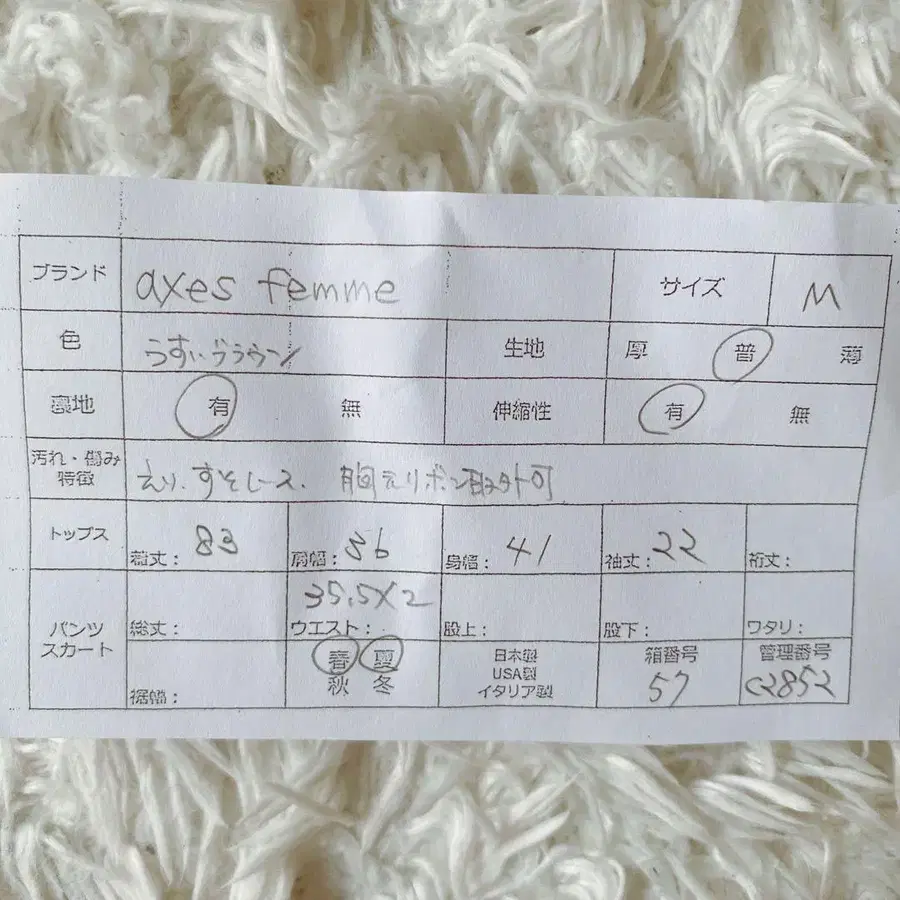 ブランド axes femme サイズ M
色 うすいブラウン 生地 厚 普 薄
裏地 有 無 伸縮性 有 無
汚れ・傷み
特徴 えり、すそレース、胸元リボン取外可
トップス 着丈: 83 肩幅: 36 身幅: 41 袖丈: 22 裄丈:
パンツ
スカート 総丈: ウエスト: 35.5×2 股上: 股下: ワタリ:
裾幅: 春 夏
秋 冬
日本製
USA製
イタリア製
箱番号
57
管理番号
C2852